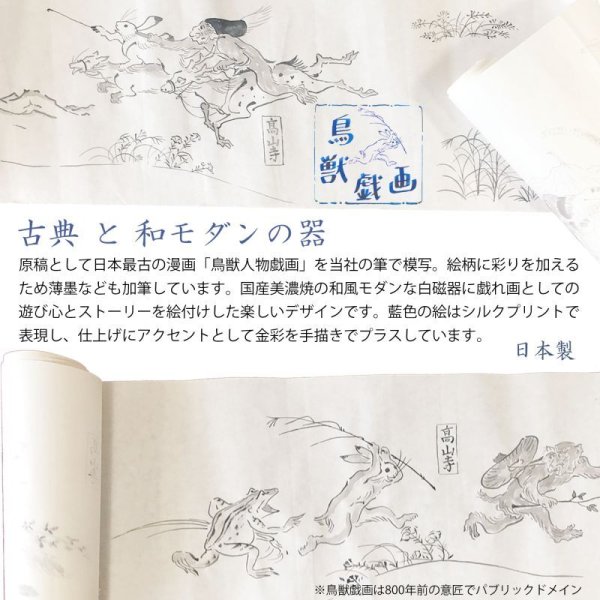 高山寺
鳥獣戯画
古典と和モダンの器
原稿として日本最古の漫画「鳥獣人物戯画」を当社の筆で模写。絵柄に彩りを加える
ため薄墨なども加筆しています。国産美濃焼の和風モダンな白磁器に戯れ画としての
遊び心とストーリーを絵付けした楽しいデザインです。藍色の絵はシルクプリントで
表現し、仕上げにアクセントとして金彩を手描きでプラスしています。
日本製
高山寺
※鳥獣戯画は800年前の意匠でパブリックドメイン